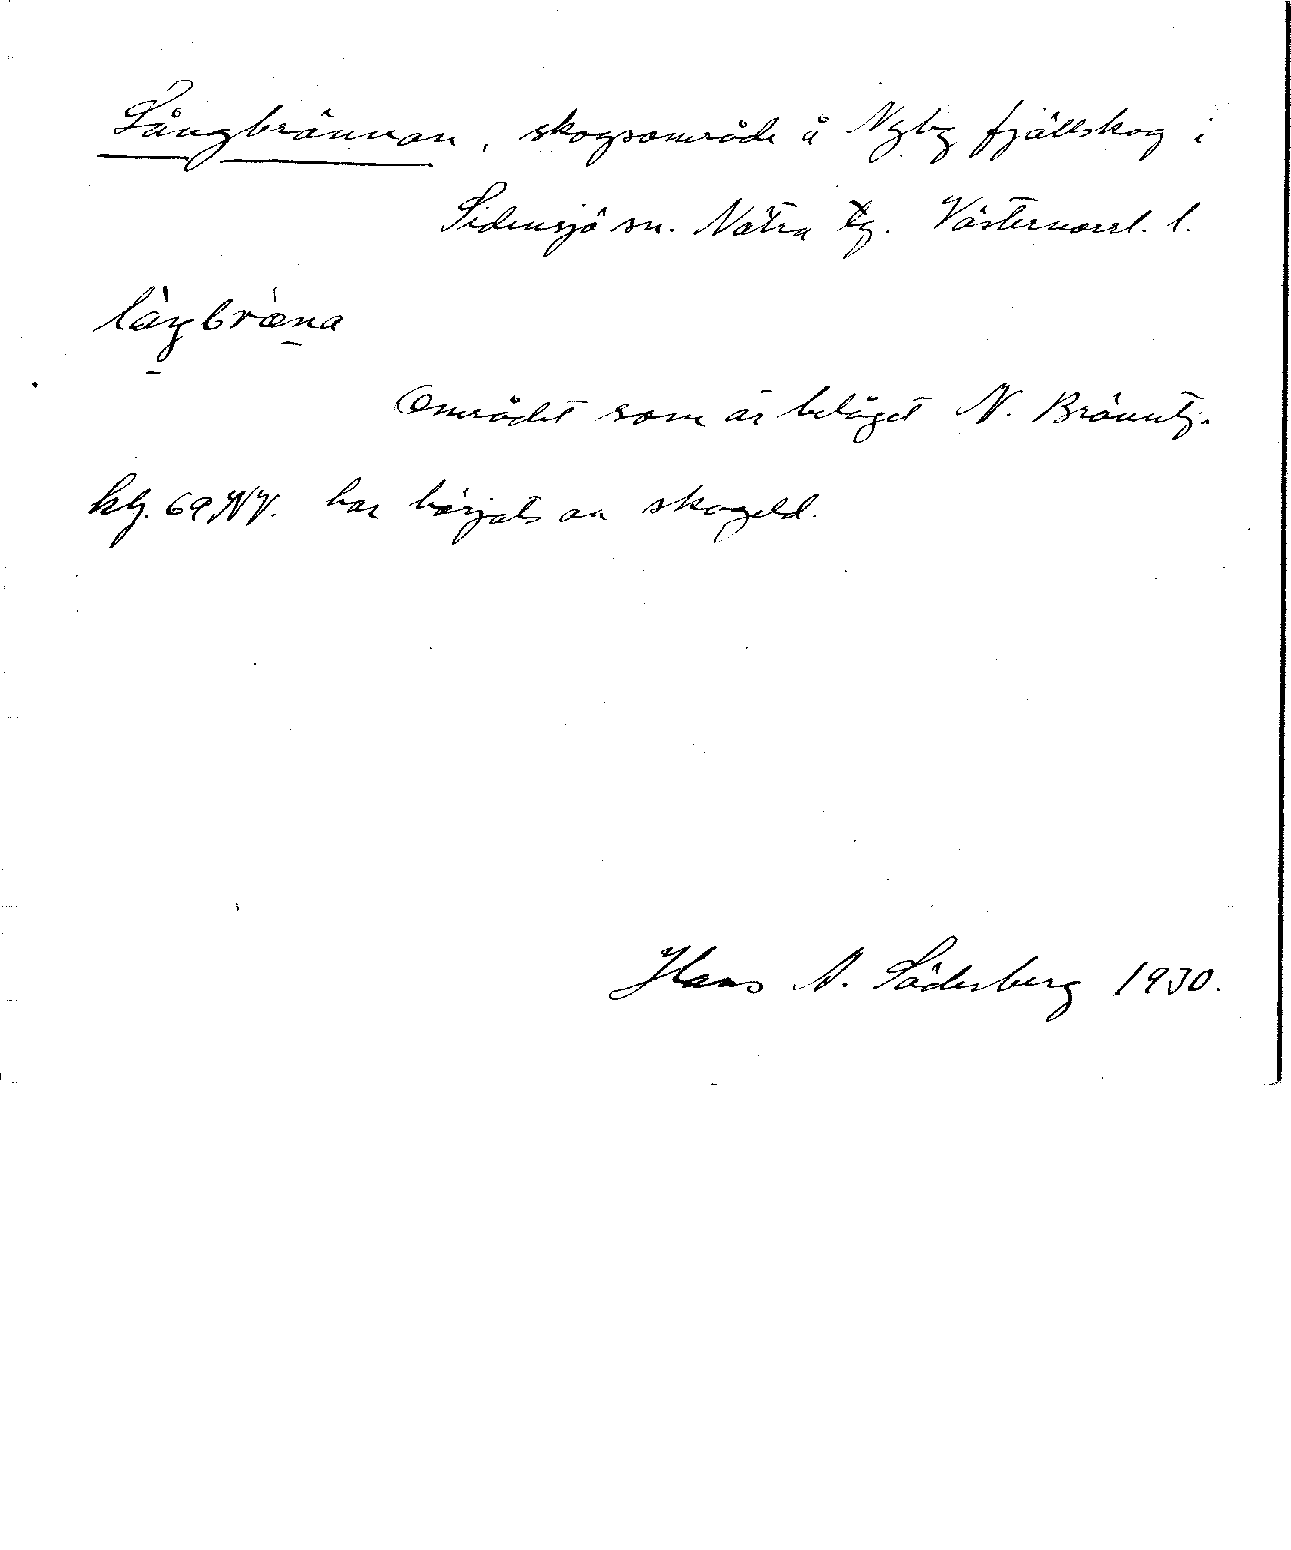 Långbrännan, skogsområde å Nyby fjällskog i
Sidensjö sn. Nätra tg. Västernorrl. l.
lå̀ŋbræ̀na
Området som är beläget N. Bränntj.
kbl. 69 NV. har härjats av skogeld.
Hans A. Söderberg 1930.